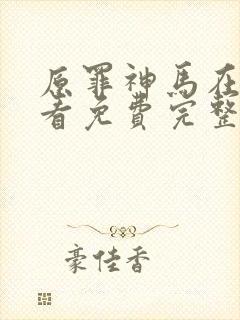 原罪神马在
看免费完整
豪佳香